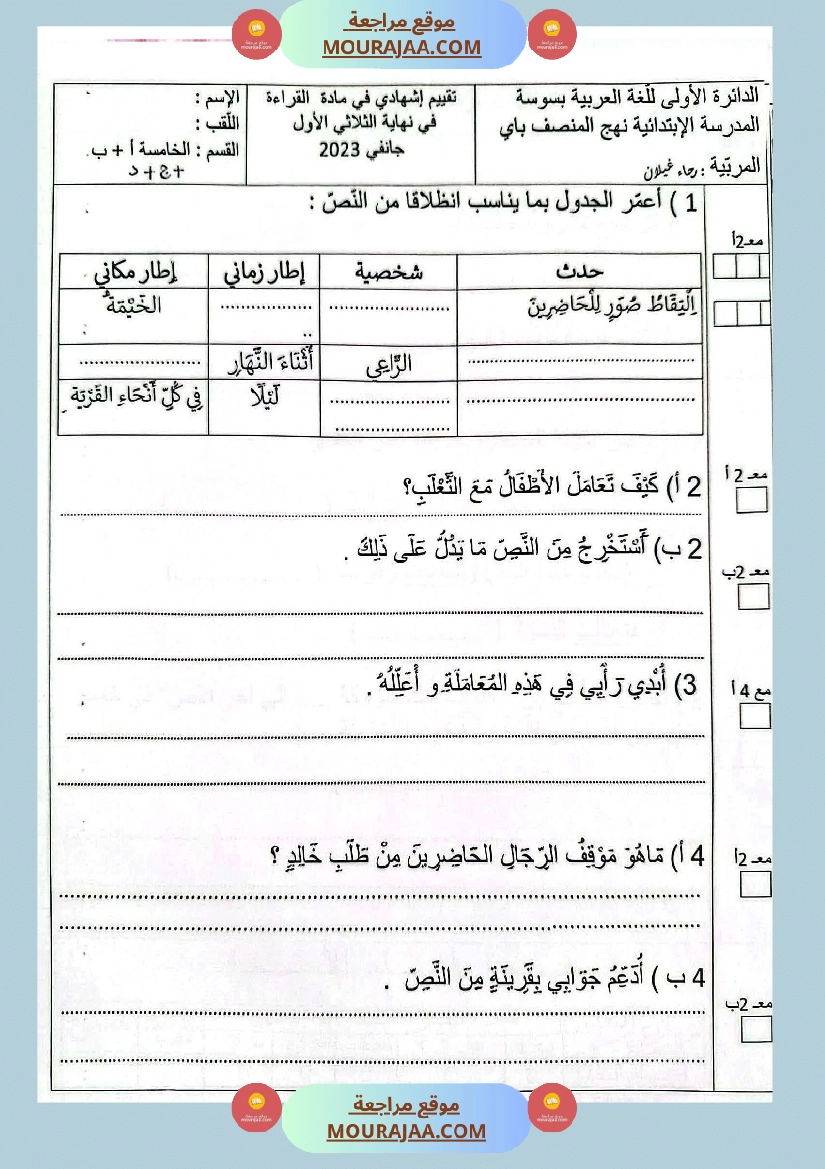 موقع مراجعة
MOURAJAA.COM
الدائرة الأولى للّغة العربية بسوسة
المدرسة الإبتدائية نهج المنصف باي
المربّية : رجاء غيلان
تقييم إشهادي في مادة القراءة
في نهاية الثلاثي الأول
جانفي 2023
الإسم :
اللّقب :
القسم : الخامسة أ + ب
+ ج + د
1 ) أعمّر الجدول بما يناسب انطلاقا من النّصّ :
معـ2أ
حدث شخصية إطار زماني إطار مكاني
اِلْتِقَاطُ صُوَرٍ لِلْحَاضِرِينَ ........................ .................... الخَيْمَةُ
........................ الرَّاعِي أَثْنَاءَ النَّهَارِ ........................
........................ ........................ لَيْلًا فِي كُلِّ أَنْحَاءِ القَرْيَةِ
2 أ) كَيْفَ تَعَامَلَ الأَطْفَالُ مَعَ الثَّعْلَبِ؟
معـ 2 أ
2 ب) أَسْتَخْرِجُ مِنَ النَّصِّ مَا يَدُلُّ عَلَى ذَلِكَ .
معـ 2ب
3) أُبْدِي رَأْيِي فِي هَذِهِ المُعَامَلَةِ و أُعَلِّلُهُ .
مع 4 أ
4 أ) مَاهُوَ مَوْقِفُ الرِّجَالِ الحَاضِرِينَ مِنْ طَلَبِ خَالِدٍ ؟
معـ 2أ
4 ب ) أُدَعِّمُ جَوَابِي بِقَرِينَةٍ مِنَ النَّصِّ .
معـ 2ب
موقع مراجعة
MOURAJAA.COM